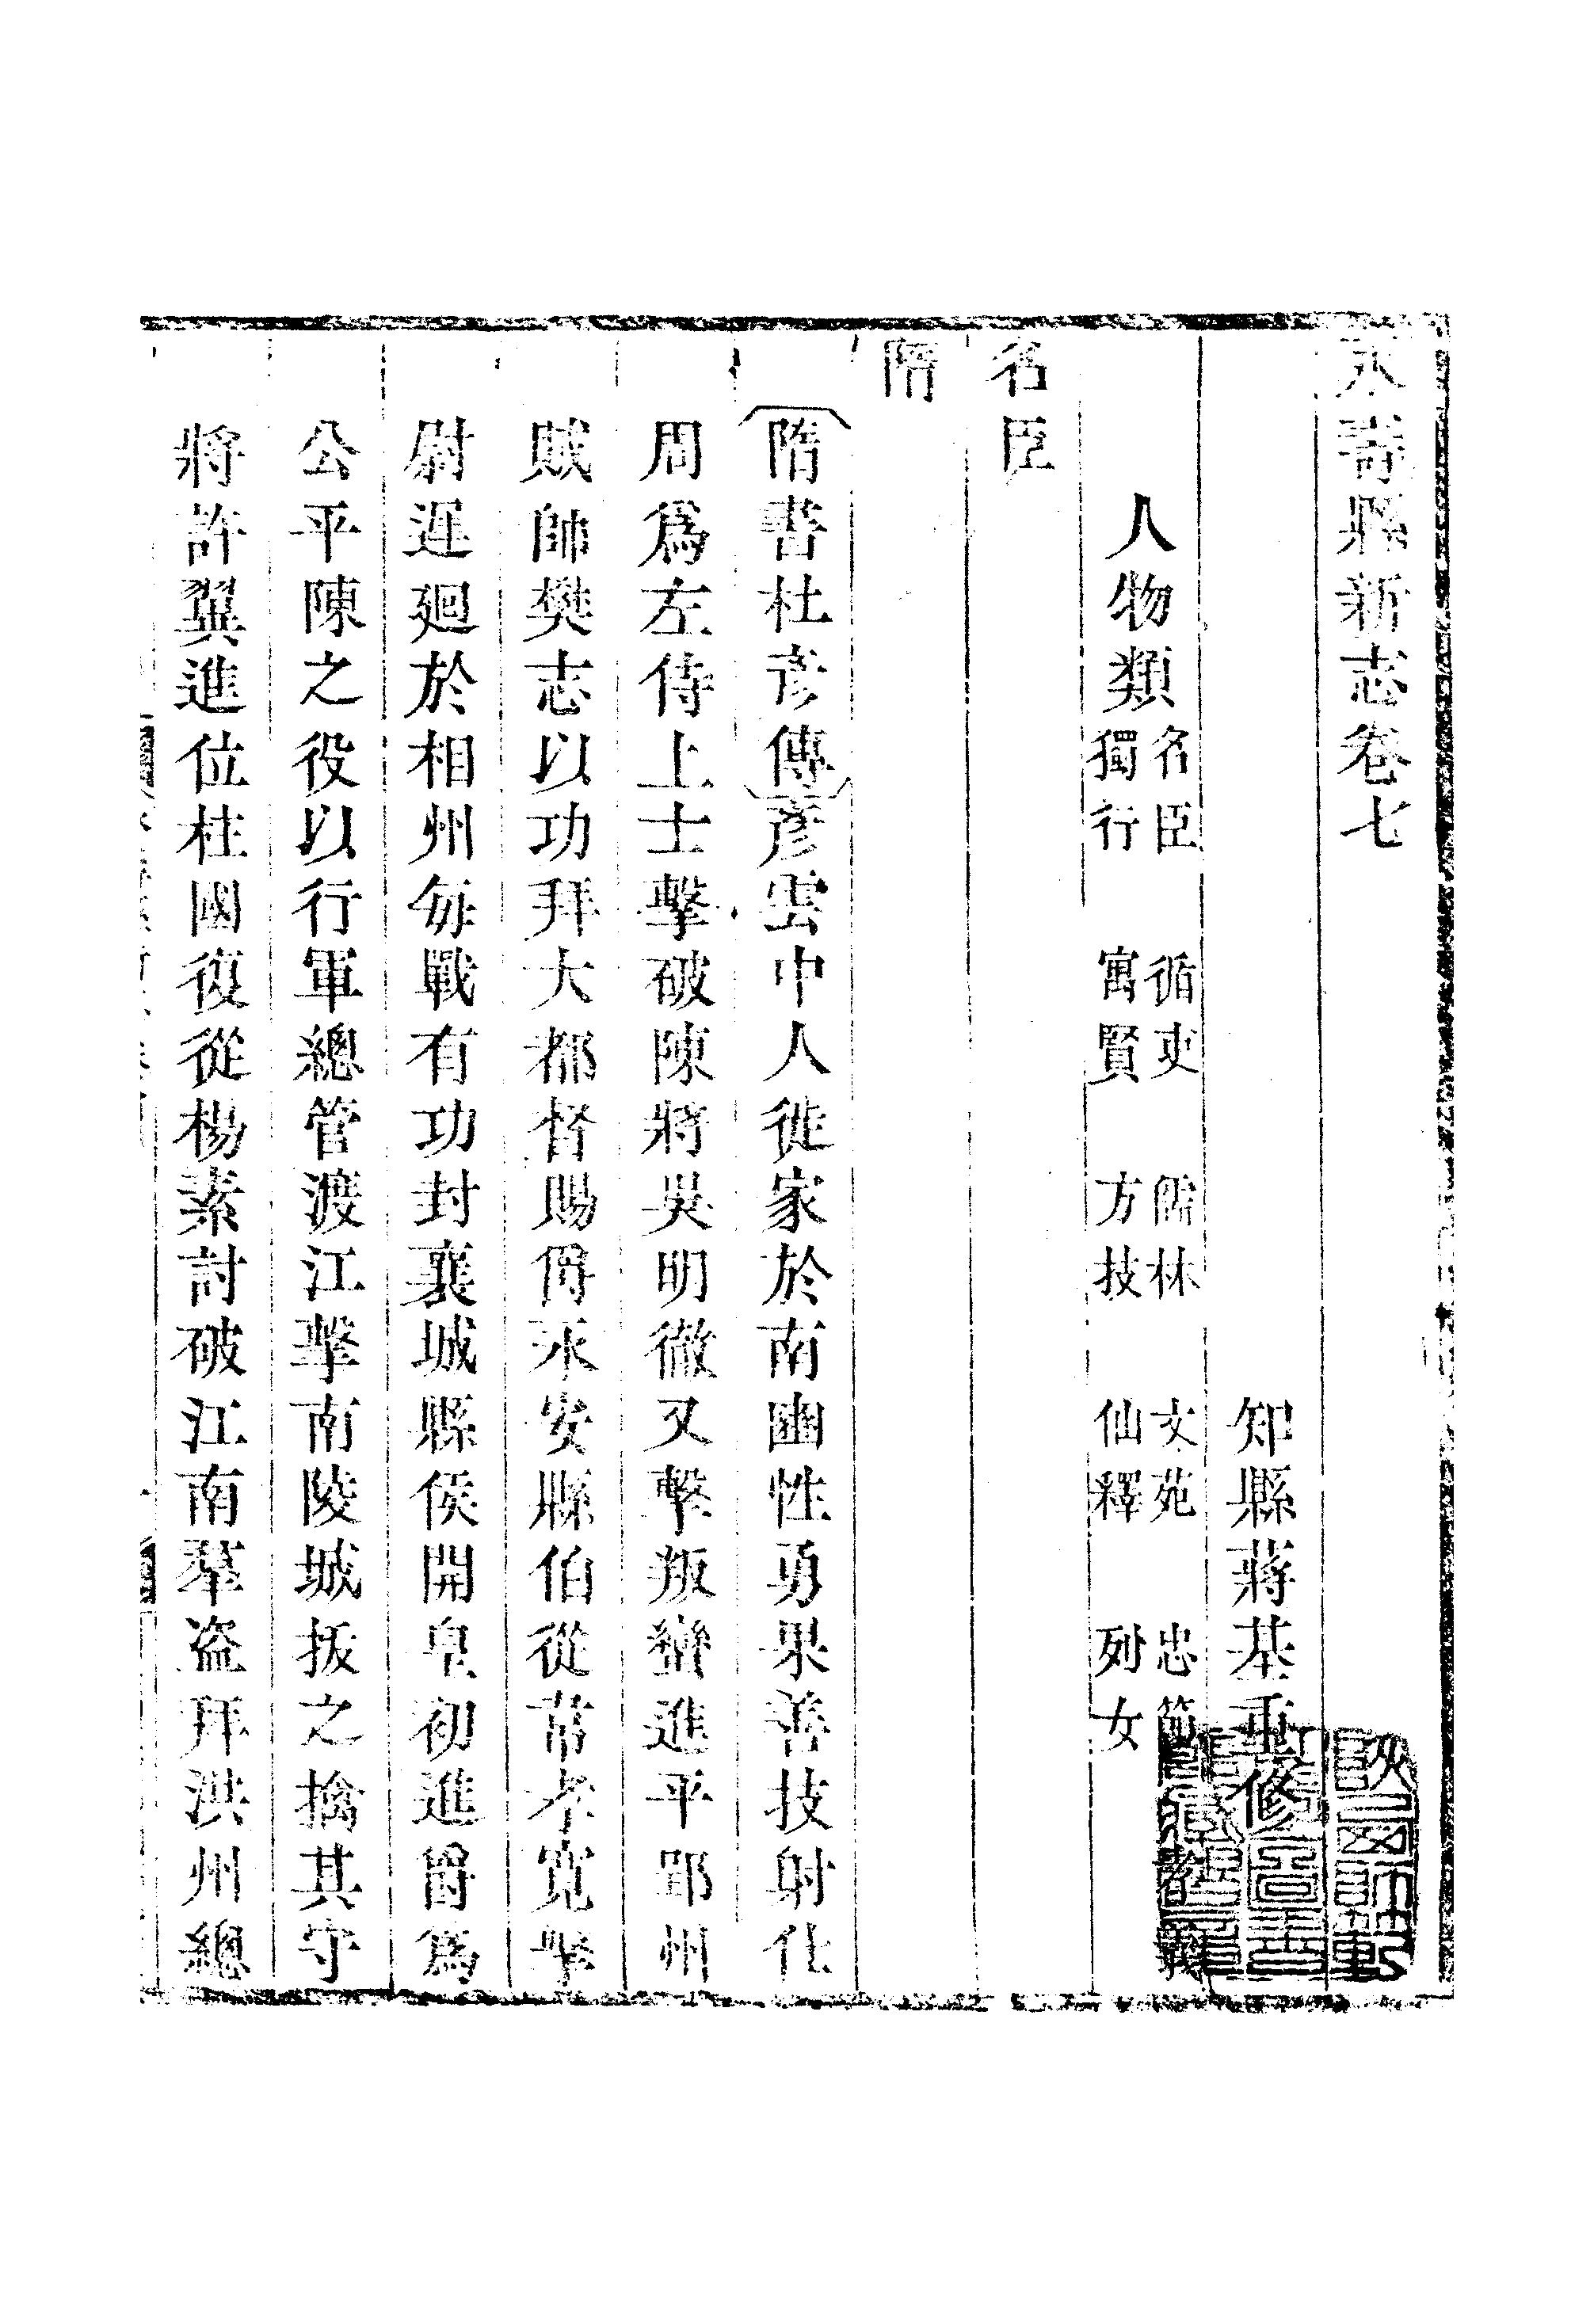 永壽縣新志卷七
知縣蔣基重修
人物類 名臣 循吏 儒林 文苑 忠節 孝義
獨行 寓賢 方技 仙釋 列女
名臣
隋
隋書杜彥傳彥雲中人徙家於南豳性勇果善技射仕
周爲左侍上士擊破陳將吳明徹又擊叛蠻進平郢州
賊帥樊志以功拜大都督賜爵永安縣伯從韋孝寬擊
尉遲廻於相州每戰有功封襄城縣侯開皇初進爵爲
公平陳之役以行軍總管渡江擊南陵城拔之擒其守
將許翼進位柱國復從楊素討破江南羣盜拜洪州總